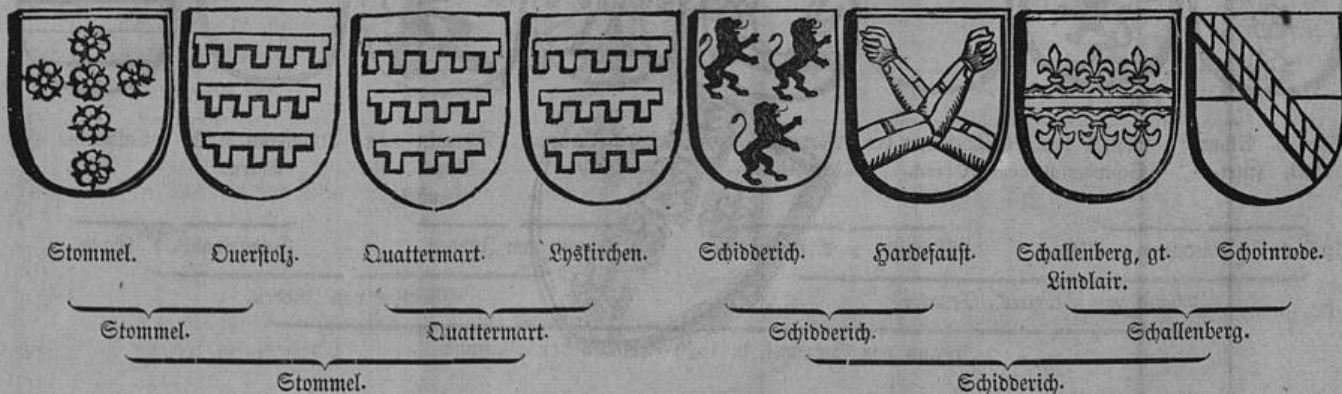 Stommel. Overstolz. Quattermart. Lyskirchen. Schidderich. Hardefaust. Schallenberg, gt. Schoinrode.
Lindlair.
Stommel. Quattermart. Schidderich. Schallenberg.
Stommel. Schidderich.